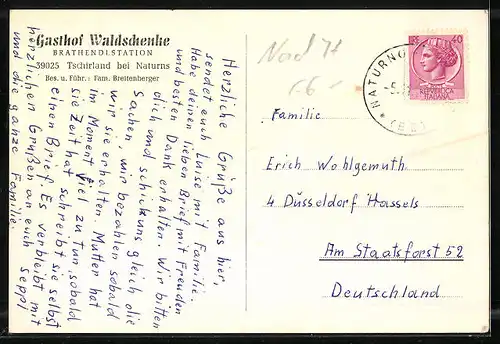 Gasthof Waldschenke
BRATHENDLSTATION
39025 Tschirland bei Naturns
Bes. u. Führ.: Fam. Breitenberger
Herzliche Grüße aus hier,
sendet euch Luise mit Familie.
Habe deinen lieben Brief mit Freuden
und besten Dank erhalten. Wir bitten
dich und schick uns gleich die
Sachen, wir bezahlen sobald
wir sie erhalten. Mutter hat
im Moment viel zu tun, sobald
sie Zeit hat schreibt sie selbst
einen Brief. Es verbleibt mit
herzlichen Grüßen an euch Seppl
und die ganze Familie.
40
REPUBBLICA
ITALIANA
NATURNO
(BZ)
Familie
Erich Wohlgemuth
4 Düsseldorf Hassels
Am Staatsforst 52
Deutschland